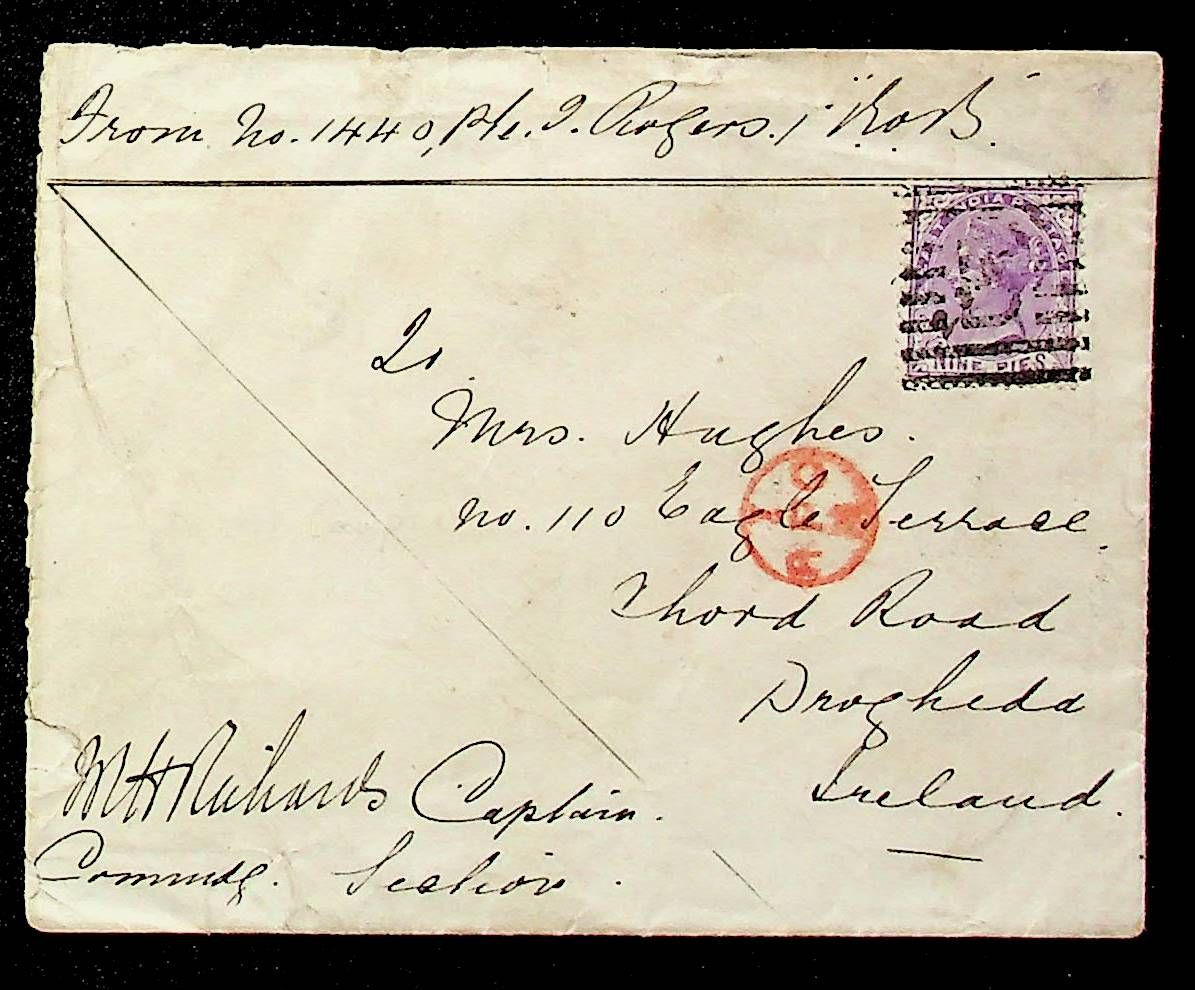 From No. 1440, Pte. J. Rogers. /
EAST INDIA POSTAGE
NINE PIES
To
Mrs. Hughes.
No. 110 Eagle Terrace.
Thord Road
Drogheda
Ireland.
M H Richards Captain.
Commdg. Section.